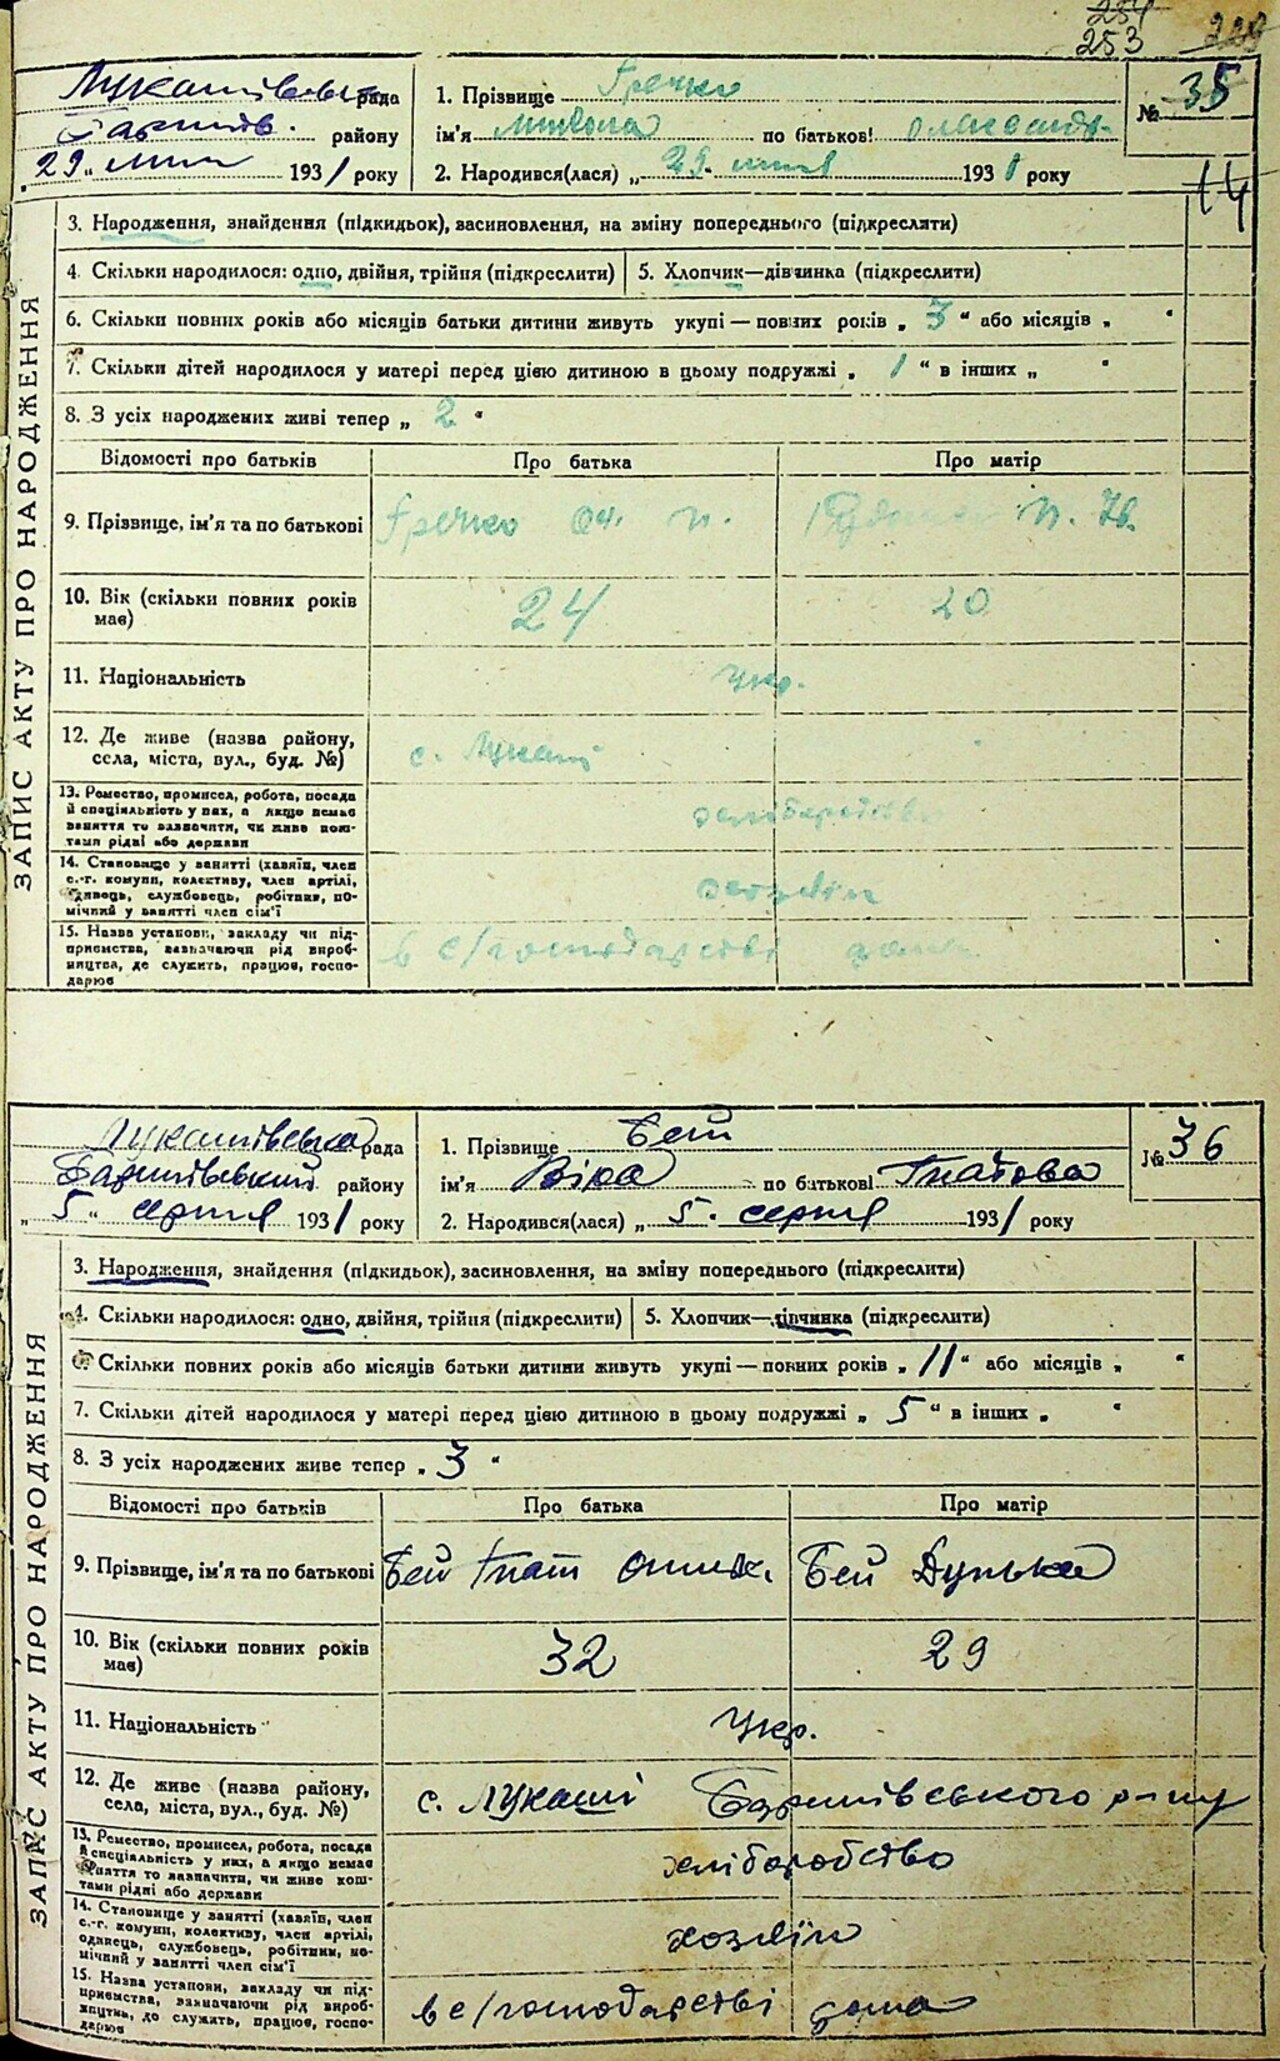 254
253
Лукашівська рада
Баришів. району
„29“ липня 1931 року
1. Прізвище Гречко
ім'я Микола по батькові Олександр.
2. Народився(лася) „29. липня 1931 року
№ 35
14
ЗАПИС АКТУ ПРО НАРОДЖЕННЯ
3. Народження, знайдення (підкидьок), засиновлення, на зміну попереднього (підкреслити)
4. Скільки народилося: одно, двійня, трійня (підкреслити) 5. Хлопчик—дівчинка (підкреслити)
6. Скільки повних років або місяців батьки дитини живуть укупі — повних років „ 3 “ або місяців „ “
7. Скільки дітей народилося у матері перед цією дитиною в цьому подружжі „ 1 “ в інших „ “
8. З усіх народжених живі тепер „ 2 “
Відомості про батьків Про батька Про матір
9. Прізвище, ім'я та по батькові Гречко П.
10. Вік (скільки повних років 24 20
має)
11. Національність укр.
12. Де живе (назва району, с. Лукаші
села, міста, вул., буд. №)
13. Ремество, промисел, робота, посада хліборобство
й спеціяльність у них, а якщо немає
заняття то зазначити, чи живе кош-
тами рідні або держави
14. Становище у занятті (хазяїн, член хозяїн
с.-г. комуни, колективу, член артілі,
одинець, службовець, робітник, по-
мічний у занятті член сім'ї
15. Назва установи, закладу чи під- в с/господарстві дома
приємства, зазначаючи рід вироб-
ництва, де служить, працює, госпо-
дарює
Лукашівська рада
Баришівський району
„5“ серпня 1931 року
1. Прізвище Бей
ім'я Віра по батькові Гнатова
2. Народився(лася) „5. серпня 1931 року
№ 36
ЗАПИС АКТУ ПРО НАРОДЖЕННЯ
3. Народження, знайдення (підкидьок), засиновлення, на зміну попереднього (підкреслити)
4. Скільки народилося: одно, двійня, трійня (підкреслити) 5. Хлопчик—дівчинка (підкреслити)
6. Скільки повних років або місяців батьки дитини живуть укупі — повних років „ 11 “ або місяців „ “
7. Скільки дітей народилося у матері перед цією дитиною в цьому подружжі „ 5 “ в інших „ “
8. З усіх народжених живе тепер „ 3 “
Відомості про батьків Про батька Про матір
9. Прізвище, ім'я та по батькові Бей Гнат Бей Дунька
10. Вік (скільки повних років 32 29
має)
11. Національність укр.
12. Де живе (назва району, с. Лукаші Баришівського р-ну
села, міста, вул., буд. №)
13. Ремество, промисел, робота, посада хліборобство
й спеціяльність у них, а якщо немає
заняття то зазначити, чи живе кош-
тами рідні або держави
14. Становище у занятті (хазяїн, член хозяїн
с.-г. комуни, колективу, член артілі,
одинець, службовець, робітник, по-
мічний у занятті член сім'ї
15. Назва установи, закладу чи під- в с/господарстві дома
приємства, зазначаючи рід вироб-
ництва, де служить, працює, госпо-
дарює